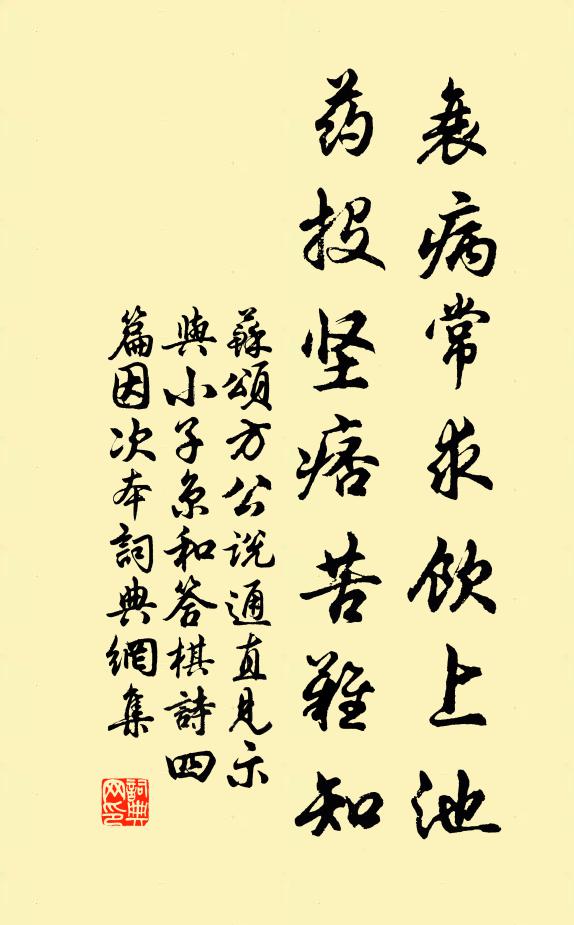 衰病常求饮上池
药投坚痞苦難知
蘇頌方公説通直見示
與小子京和答棋詩四
篇因次本詞典網集
詞典
网印